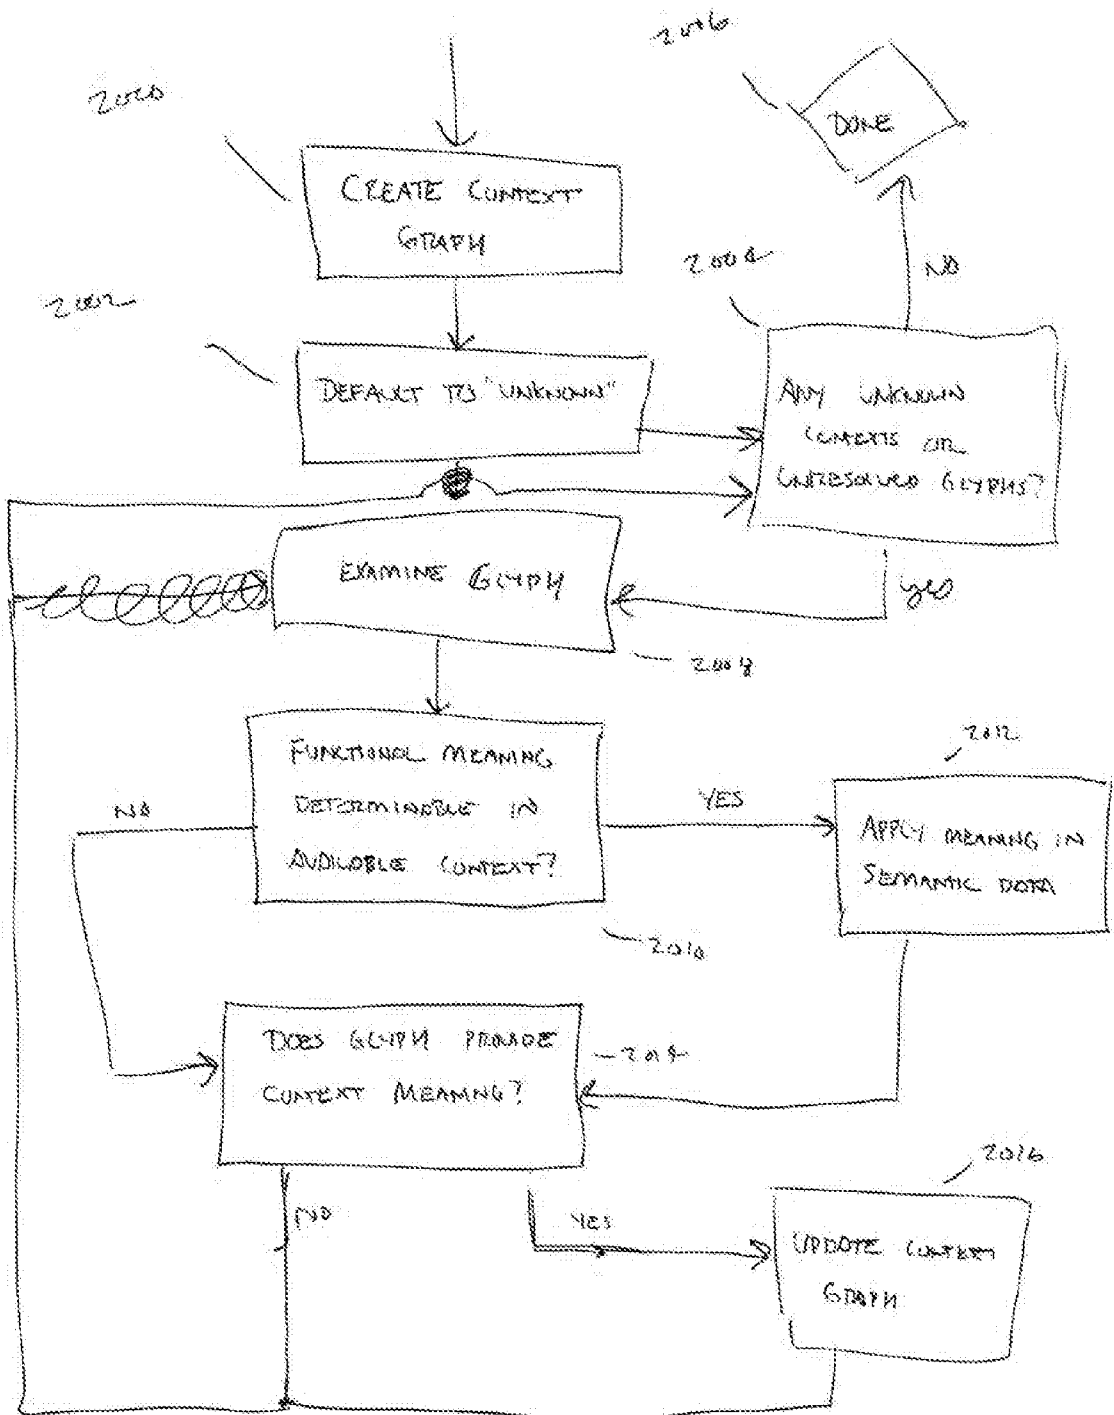 2006
DONE
2000
CREATE CONTEXT
GRAPH
2004
NO
2002
DEFAULT TO "UNKNOWN"
ANY UNKNOWN
CONTEXTS OR
UNRESOLVED GLYPHS?
EXAMINE GLYPH
yes
2008
FUNCTIONAL MEANING
DETERMINABLE IN
AVAILABLE CONTEXT?
NO
YES
2012
APPLY MEANING IN
SEMANTIC DATA
2010
DOES GLYPH PROVIDE
CONTEXT MEANING?
2014
NO
YES
2016
UPDATE CONTEXT
GRAPH